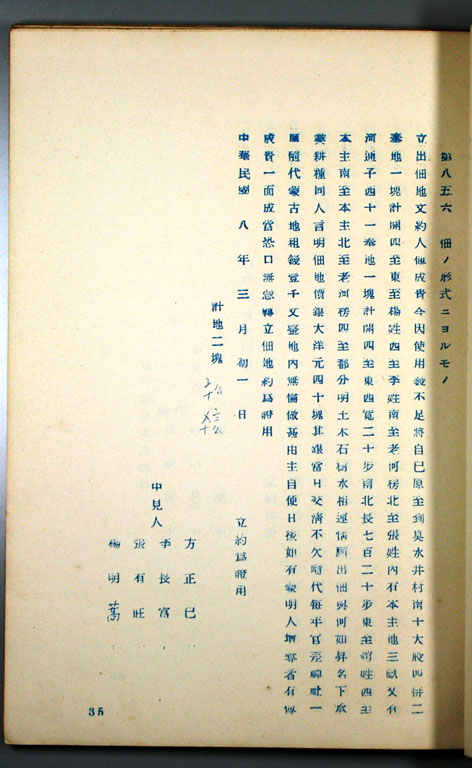 第八五六 佃ノ形式ニヨルモノ
立出佃地文約人傅成貴今因使用錢不足將自已原至到吳水井村南十大股四拼二
臺地一塊計開四至東至楊姓西至李姓南至老河楞北至張姓內有本主地三畝又有
河通子西十一臺地一塊計開四至東西寬二十步南北長七百二十步東至 姓西至
本主南至本主北至老河楞四至都分明土木石樹水相連情願出佃與何如昇名下承
英耕種同人言明佃地價銀大洋元四十塊其銀當日交清不欠 代每年官差神社一
隨代蒙古地租錢壹千文整地內無偷做甚由主自使日後如有蒙明人 爭者有傅
成貴一面成當恐口無憑轉立佃地約爲證用
中華民國 八年三月初一日
計地二塊
立約爲證用
中見人
方正巳
李長富
張有旺
楊明萬
35